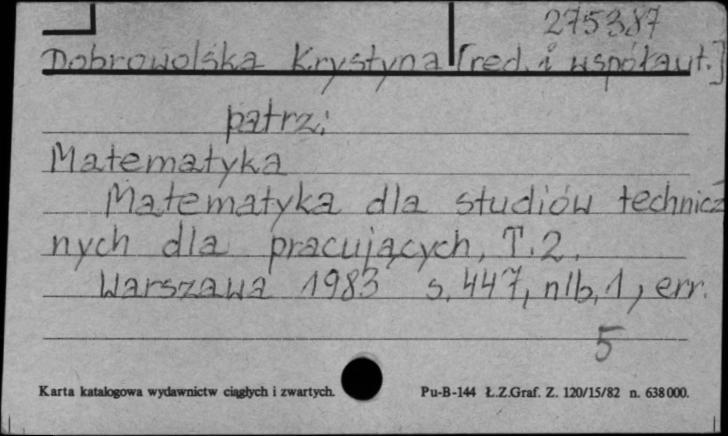 275387
Dobrowolska Krystyna [red. i współaut.]
patrz:
Matematyka
Matematyka dla studiów technicz
nych dla pracujących, T. 2.
Warszawa 1983 s. 447, nlb. 1, err.
5
Karta katalogowa wydawnictw ciągłych i zwartych. Pu-B-144 Ł.Z.Graf. Z. 120/15/82 n. 638000.